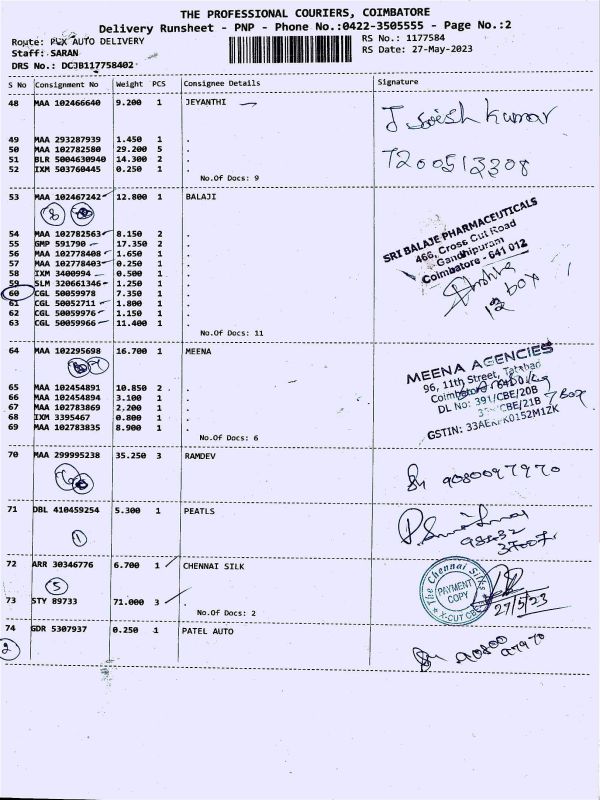 THE PROFESSIONAL COURIERS, COIMBATORE
Delivery Runsheet - PNP - Phone No.:0422-3505555 - Page No.:2
Route: PEX AUTO DELIVERY
RS No.: 1177584
Staff: SARAN
RS Date: 27-May-2023
DRS No.: DCJB117758402
S No Consignment No Weight PCS Consignee Details Signature
48 MAA 102466640 9.200 1 JEYANTHI
49 MAA 293287939 1.450 1 .
50 MAA 102782580 29.200 5 .
51 BLR 5004630940 14.300 2 .
52 IXM 503760445 0.250 1 .
No.Of Docs: 9
7200513308
53 MAA 102467242 12.800 1 BALAJI
8
54 MAA 102782563 8.150 2 .
55 GMP 591790 17.350 2 .
56 MAA 102778408 1.650 1 .
57 MAA 102778403 0.250 1 .
58 IXM 3400994 0.500 1 .
59 SLM 320661346 1.250 1 .
60 CGL 50059978 7.350 1 .
61 CGL 50052711 1.800 1 .
62 CGL 50059976 1.150 1 .
63 CGL 50059966 11.400 1 .
No.Of Docs: 11
SRI BALAJE PHARMACEUTICALS
466, Cross Cut Road
Gandhipuram
Coimbatore - 641 012
12 box
64 MAA 102295698 16.700 1 MEENA
65 MAA 102454891 10.850 2 .
66 MAA 102454894 3.100 1 .
67 MAA 102783869 2.200 1 .
68 IXM 3395467 0.800 1 .
69 MAA 102783835 8.900 1 .
No.Of Docs: 6
MEENA AGENCIES
96, 11th Street, Tatabad
DL No: 391/CBE/20B
CBE/21B
7 Box
GSTIN:
70 MAA 299995238 35.250 3 RAMDEV
9080097970
71 DBL 410459254 5.300 1 PEATLS
1
72 ARR 30346776 6.700 1 CHENNAI SILK
5
73 STY 89733 71.000 3 .
No.Of Docs: 2
The Chennai Silks
PAYMENT
COPY
X-CUT
27/5/23
74 GDR 5307937 0.250 1 PATEL AUTO
2